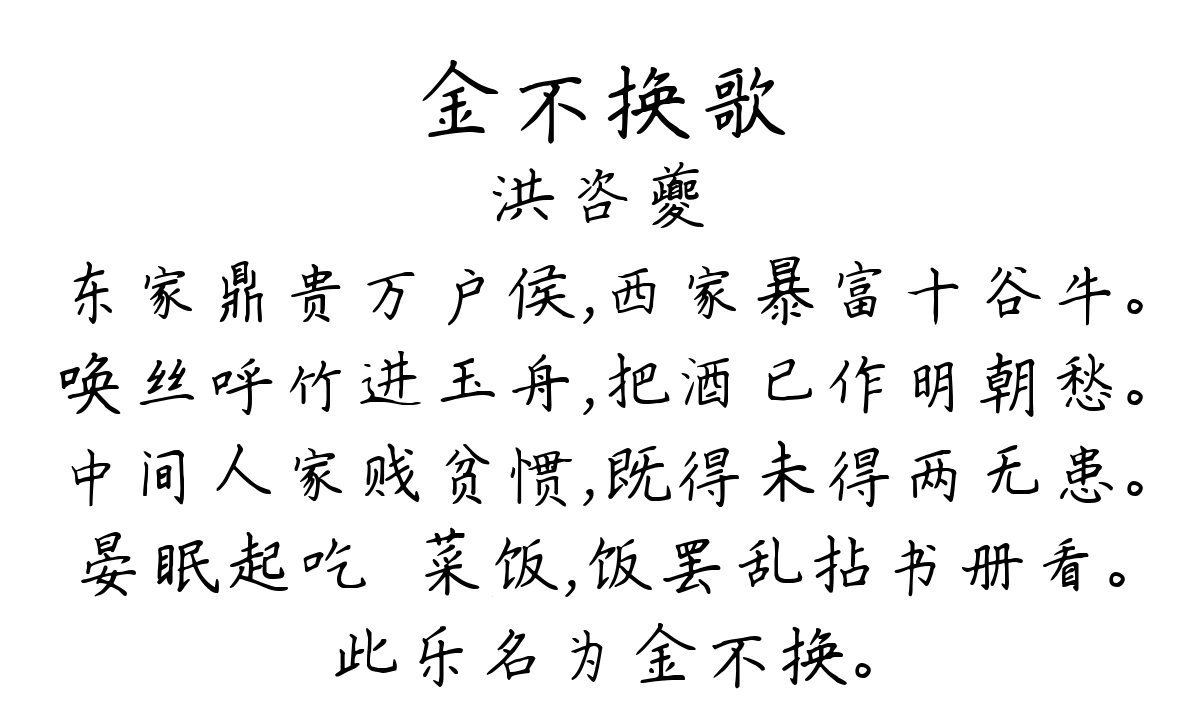 金不换歌
洪咨夔
东家鼎贵万户侯,西家暴富十谷牛。
唤丝呼竹进玉舟,把酒已作明朝愁。
中间人家贱贫惯,既得未得两无患。
晏眠起吃 菜饭,饭罢乱拈书册看。
此乐名为金不换。